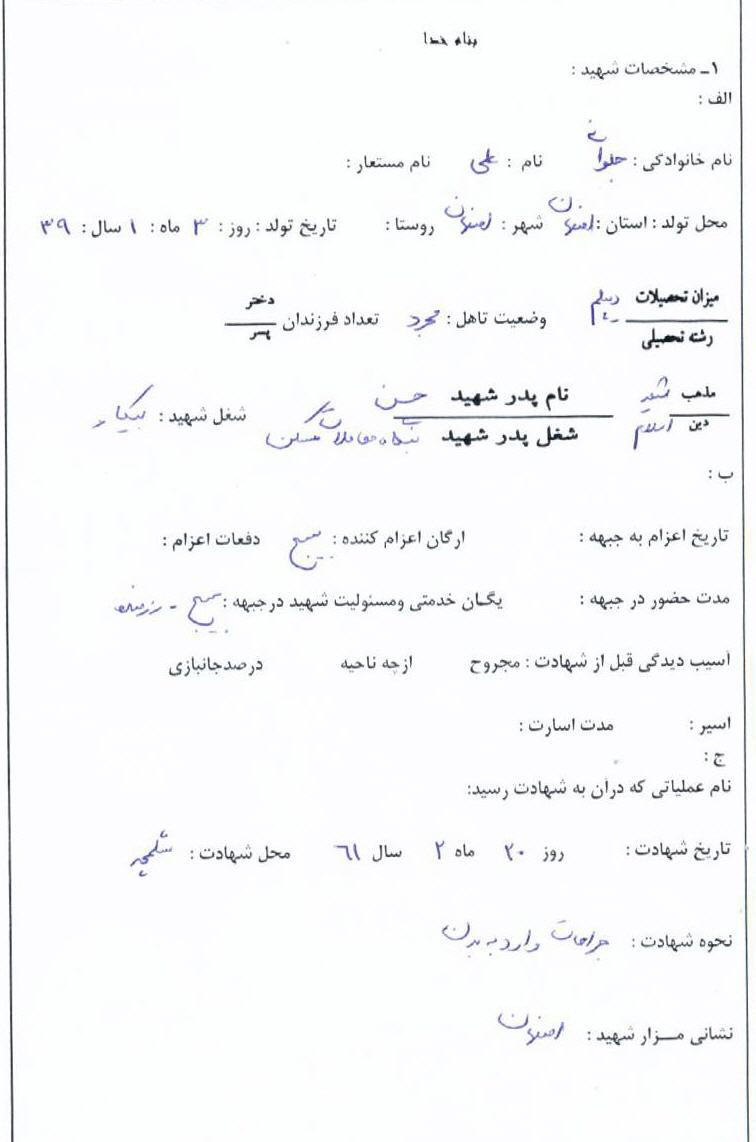 بنام خدا
۱ـ مشخصات شهید :
الف :
نام خانوادگی : جلوانی نام : علی نام مستعار :
محل تولد : استان : اصفهان شهر : اصفهان روستا : تاریخ تولد : روز : ۳ ماه : ۱ سال : ۳۹
میزان تحصیلات دیپلم وضعیت تاهل : مجرد تعداد فرزندان دختر
رشته تحصیلی پسر
مذهب شیعه نام پدر شهید حسن شغل شهید : بیکار
دین اسلام شغل پدر شهید بنگاه معاملات مسکن
ب :
تاریخ اعزام به جبهه : ارگان اعزام کننده : بسیج دفعات اعزام :
مدت حضور در جبهه : یگان خدمتی ومسئولیت شهید درجبهه : بسیج - رزمنده
آسیب دیدگی قبل از شهادت : مجروح ازچه ناحیه درصدجانبازی
اسیر : مدت اسارت :
ج :
نام عملیاتی که درآن به شهادت رسید:
تاریخ شهادت : روز ۲۰ ماه ۲ سال ۶۱ محل شهادت : شلمچه
نحوه شهادت : جراحات وارد به بدن
نشانی مـزار شهید : اصفهان